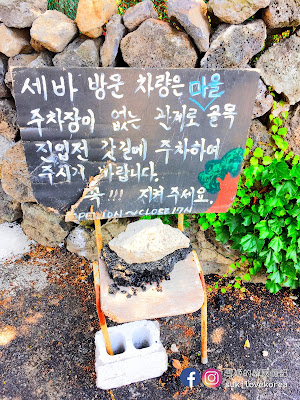 세바 방문 차량은 마을
주차장이 없는 관계로 골목
진입전 갓길에 주차하여
주시기 바랍니다.
꼭 !!! 지켜 주세요
OPEN 10N ~ CLOSE 17N
suki.lovekorea